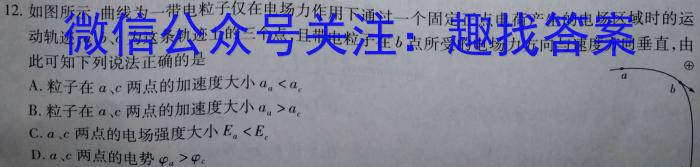 12. 如图所示,曲线为一带电粒子仅在电场力作用下通过一个固定 电荷产生的电场区域时的运
动轨迹 这条轨迹上的三个点,且带电粒子在b点所受 电场力方向与速度方向垂直,由
此可知下列说法正确的是
微信公众号关注:趣找答案
A. 粒子在a、c两点的加速度大小aₐ<a꜀
B. 粒子在a、c两点的加速度大小aₐ>a꜀
C. a、c两点的电场强度大小Eₐ<E꜀
D. a、c两点的电势φₐ>φ꜀
a
b
⊕